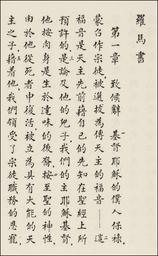 羅馬書
第一章 致候辭 基督耶穌的僕人保祿
蒙召作宗徒被選拔為傳天主的福音——這
福音是天主先前藉自己的先知在聖經上所
預許的是論及他的兒子我們的主耶穌基督
他按肉身是生於達味的後裔按至聖的神性
由於他從死者中復活被立為具有大能的天
主之子藉著他我們領受了宗徒職務的恩寵